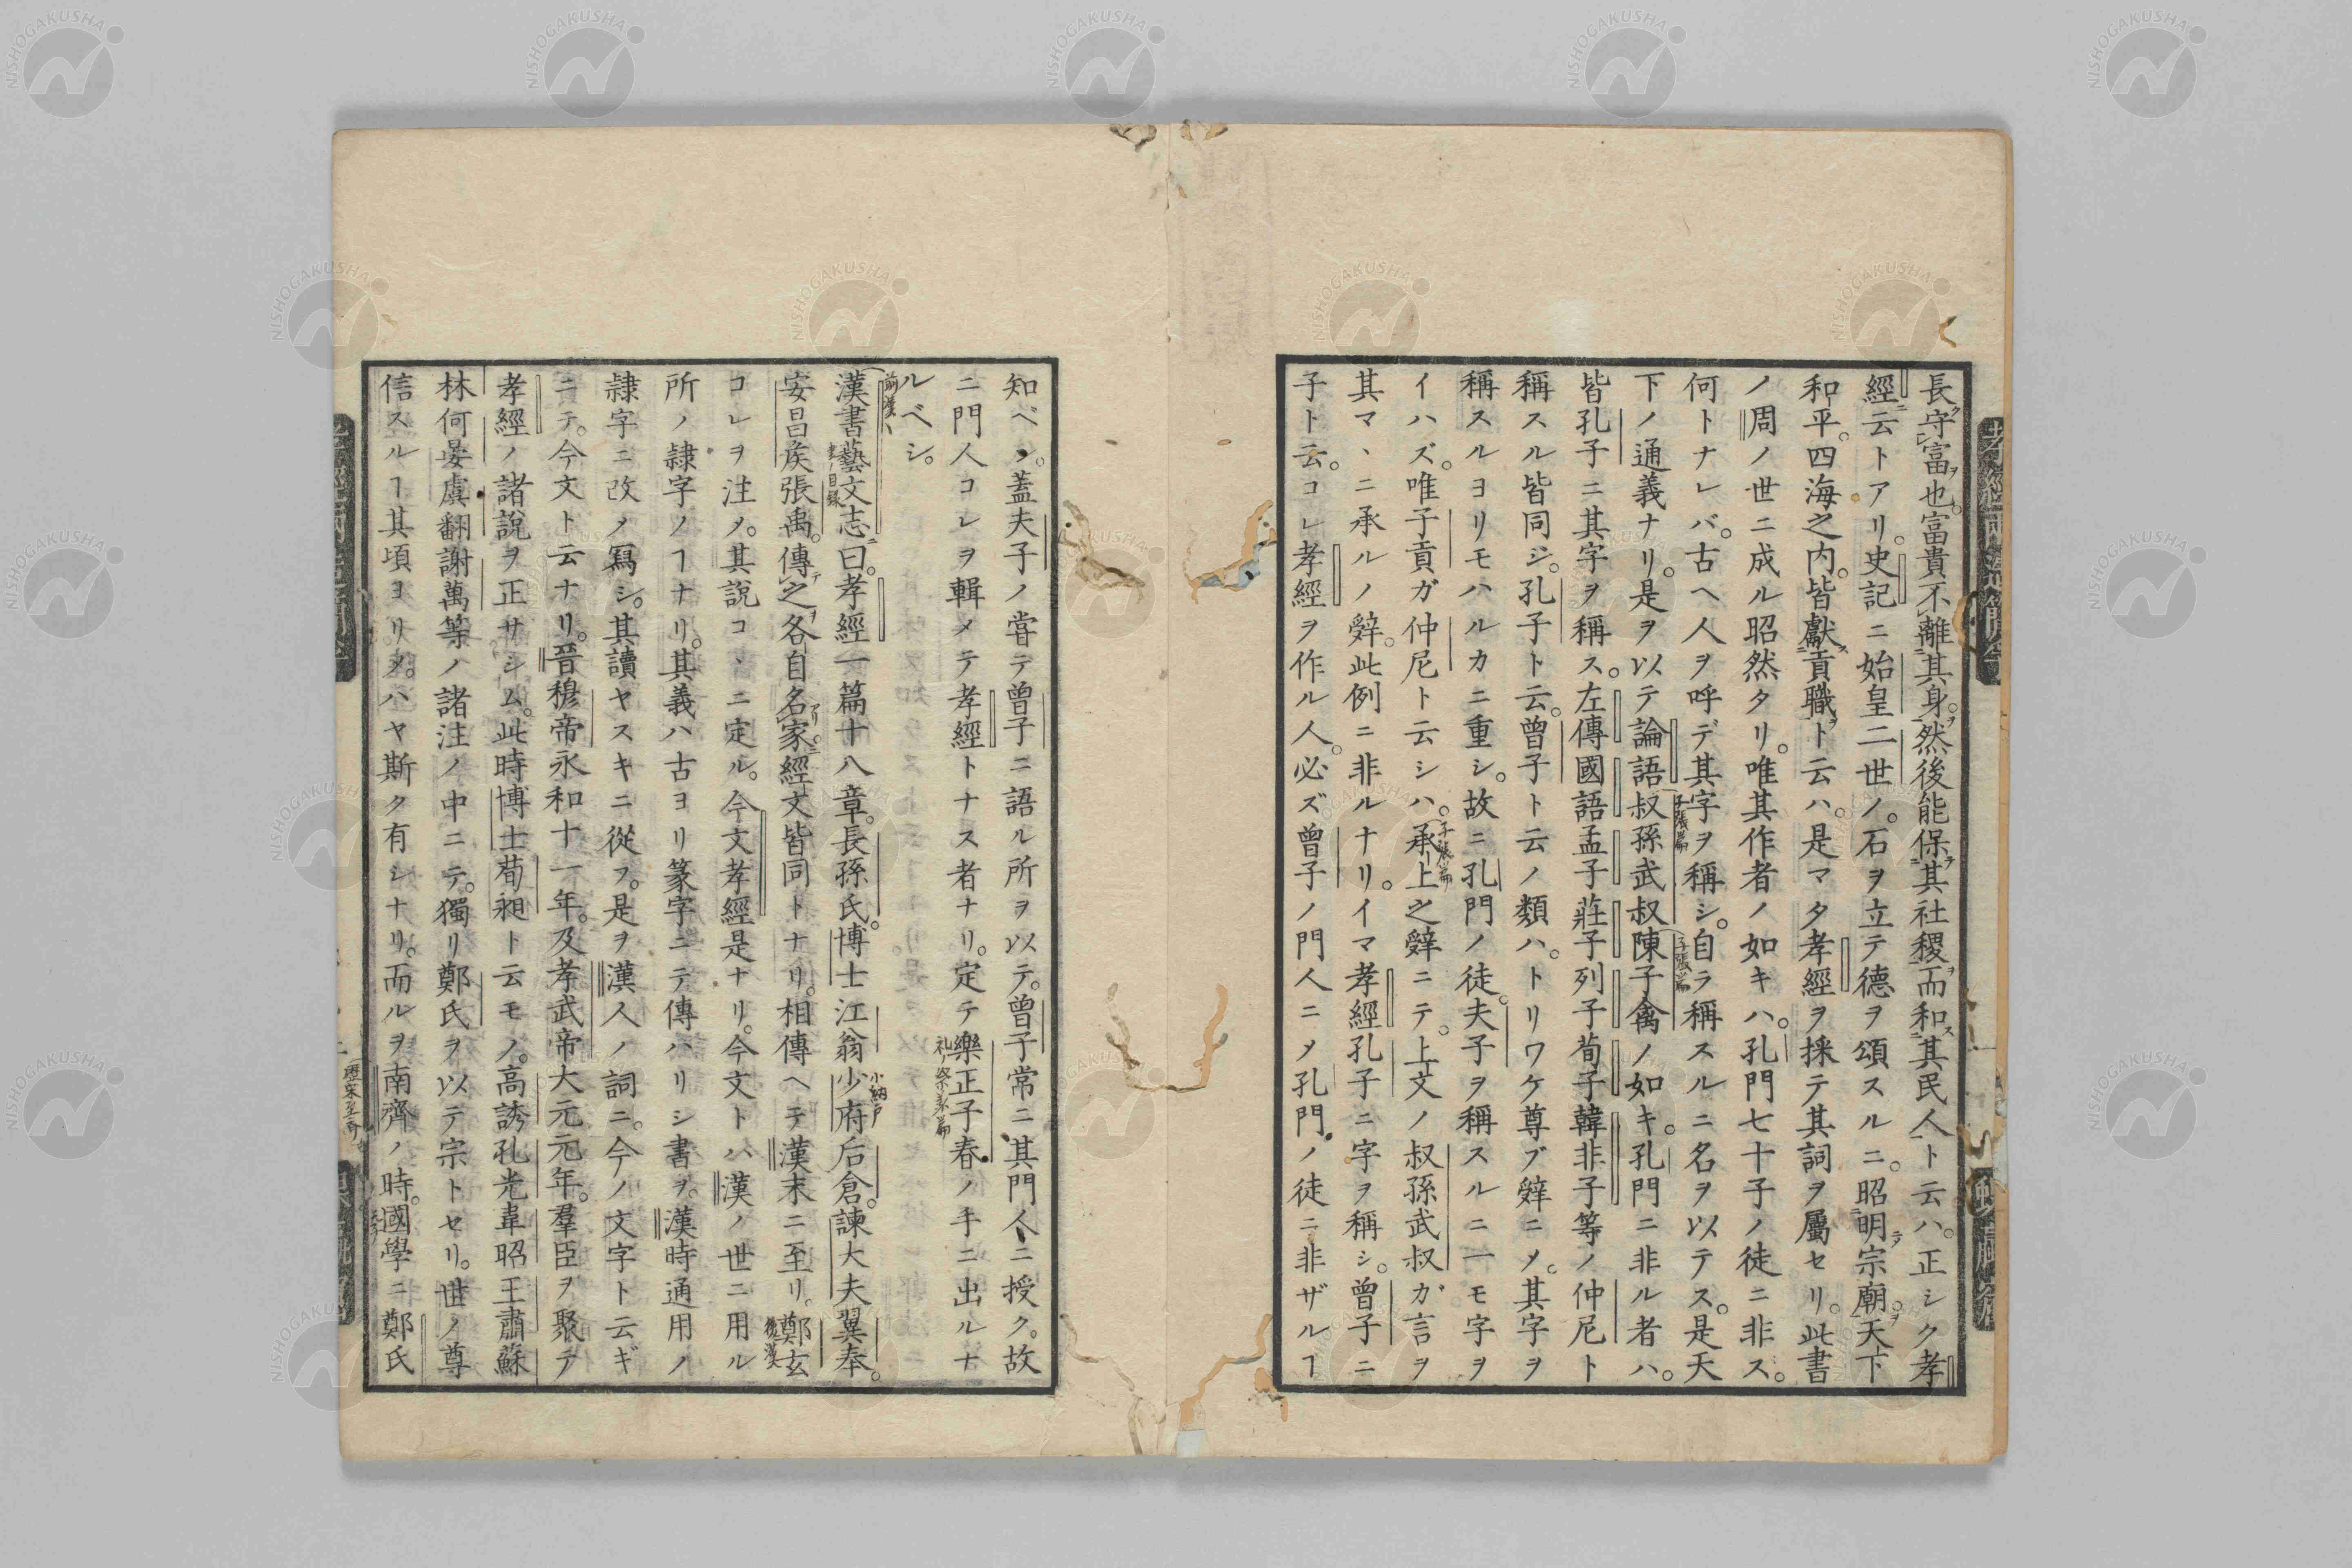 長守富也。富貴不離其身。然後能保其社稷而和其民人ト云ハ。正シク孝
經云トアリ。史記ニ始皇二世ノ。石ヲ立テ德ヲ頌スルニ。昭明宗廟。天下
和平。四海之内。皆獻貢職ト云ハ。是マタ孝經ヲ採テ其詞ヲ屬セリ。此書
ノ周ノ世ニ成ル昭然タリ。唯其作者ノ如キハ。孔門七十子ノ徒ニ非ス。
何トナレバ。古ヘ人ヲ呼デ其字ヲ稱シ。自ラ稱スルニ名ヲ以テス。是天
下ノ通義ナリ。是ヲ以テ論語叔孫武叔陳子禽ノ如キ。孔門ニ非ル者ハ。
皆孔子ニ其字ヲ稱ス。左傳國語孟子莊子列子荀子韓非子等ノ仲尼ト
稱スル皆同ジ。孔子ト云。曾子ト云ノ類ハ。トリワケ尊ブ辤ニメ。其字ヲ
稱スルヨリモハルカニ重シ。故ニ孔門ノ徒。夫子ヲ稱スルニ一モ字ヲ
イハズ。唯子貢ガ仲尼ト云シハ。承上之辤ニテ。上文ノ叔孫武叔ガ言ヲ
其マヽニ承ルノ辤。此例ニ非ルナリ。イマ孝經孔子ニ字ヲ稱シ。曾子ニ
子ト云。コレ孝經ヲ作ル人。必ズ曾子ノ門人ニメ孔門ノ徒ニ非ザルヿ
知ベシ。蓋夫子ノ嘗テ曾子ニ語ル所ヲ以テ。曾子常ニ其門人ニ授ク。故
ニ門人コレヲ輯メテ孝經トナス者ナリ。定テ樂正子春ノ手ニ出ルナ
ルベシ。
漢書藝文志曰。孝經一篇十八章。長孫氏。博士江翁少府后倉。諫大夫翼奉。
安昌矦張禹。傳之各自名家。經文皆同トナリ。相傳ヘテ漢末ニ至リ。鄭玄
コレヲ注ノ。其說コヽニ定ル。今文孝經是ナリ。今文トハ漢ノ世ニ用ル
所ノ隷字ノヿナリ。其義ハ古ヨリ篆字ニテ傳ハリシ書ヲ。漢時通用ノ
隷字ニ改メ寫シ。其讀ヤスキニ從フ。是ヲ漢人ノ詞ニ。今ノ文字ト云ギ
ニテ。今文ト云ナリ。晉穆帝永和十一年。及孝武帝大元元年。羣臣ヲ聚テ
孝經ノ諸說ヲ正サシム。此時博士荀昶ト云モノ。高誘孔光韋昭王肅蘇
林何晏虞翻謝萬等ノ諸注ノ中ニテ。獨リ鄭氏ヲ以テ宗トセリ。世ノ尊
信スルヿ其頃ヨリヲ。ハヤ斯ク有シナリ。而ルヲ南齊ノ時。國學ニ鄭氏
子張篇
子張篇
子張篇
礼祭義篇
前漢ノ
書ノ目録
小納戸
後漢
NISHOGAKUSHA